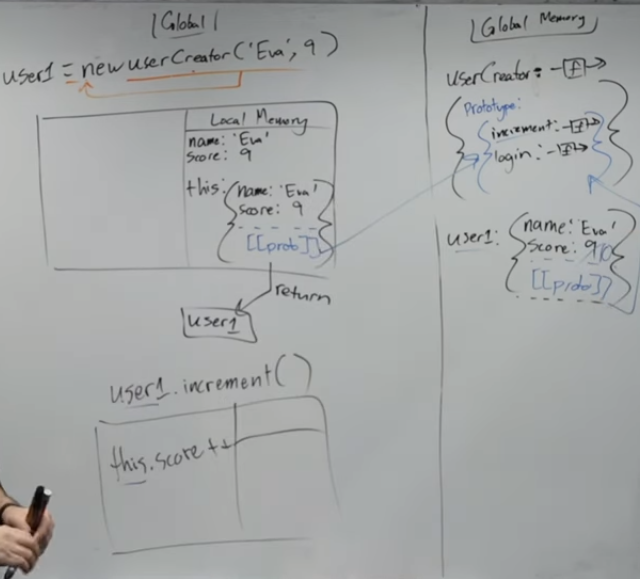 Global
user1 = new userCreator('Eva', 9)
Local Memory
name: 'Eva'
score: 9
this: { name: 'Eva'
score: 9
[[prob]] }
return
user1
user1.increment()
this.score ++
Global Memory
userCreator: -[f]->
{ Prototype:
{ increment: -[f]->
login: -[f]-> } }
user1: { name: 'Eva'
score: 9 10
[[prob]] }